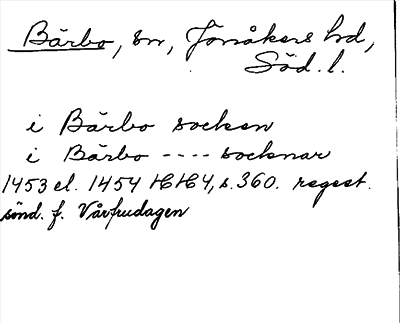 Bärbo, sn, Jönåkers hd,
Söd. l.
i Bärbo socken
i Bärbo ---- socknar
1453 el. 1454 HH4, s. 360. regest.
sönd. f. Vårfrudagen